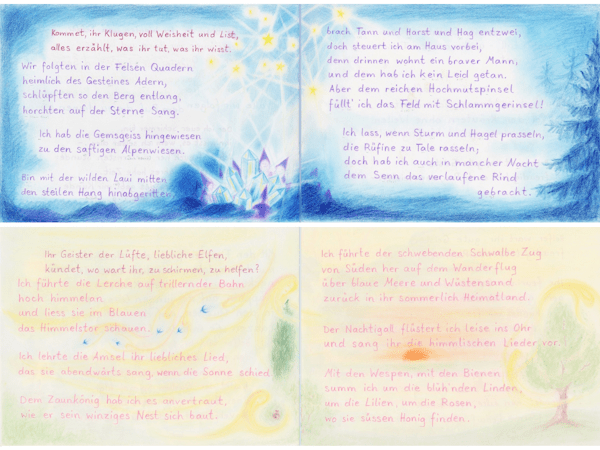 Kommet, ihr Klugen, voll Weisheit und List,
alles erzählt, was ihr tut, was ihr wisst.
Wir folgten in der Felsen Quadern
heimlich des Gesteines Adern,
schlüpften so den Berg entlang,
horchten auf der Sterne Sang.
Ich hab die Gemsgeiss hingewiesen
zu den saftigen Alpenwiesen.
Bin mit der wilden Laui mitten
den steilen Hang hinabgeritten
brach Tann und Horst und Hag entzwei,
doch steuert ich am Haus vorbei,
denn drinnen wohnt ein braver Mann,
und dem hab ich kein Leid getan.
Aber dem reichen Hochmutspinsel
füllt' ich das Feld mit Schlammgerinsel!
Ich lass, wenn Sturm und Hagel prasseln,
die Rüfine zu Tale rasseln;
doch hab ich auch in mancher Nacht
dem Senn das verlaufene Rind
gebracht.
Ihr Geister der Lüfte, liebliche Elfen,
kündet, wo wart ihr, zu schirmen, zu helfen?
Ich führte die Lerche auf trillernder Bahn
hoch himmelan
und liess sie im Blauen
das Himmelstor schauen.
Ich lehrte die Amsel ihr liebliches Lied,
das sie abendwärts sang, wenn die Sonne schied.
Dem Zaunkönig hab ich es anvertraut,
wie er sein winziges Nest sich baut.
Ich führte der schwebenden Schwalbe Zug
von Süden her auf dem Wanderflug
über blaue Meere und Wüstensand
zurück in ihr sommerlich Heimatland.
Der Nachtigall flüstert ich leise ins Ohr
und sang ihr die himmlischen Lieder vor.
Mit den Wespen, mit den Bienen
summ ich um die blüh'nden Linden,
um die Lilien, um die Rosen,
wo sie süssen Honig finden.